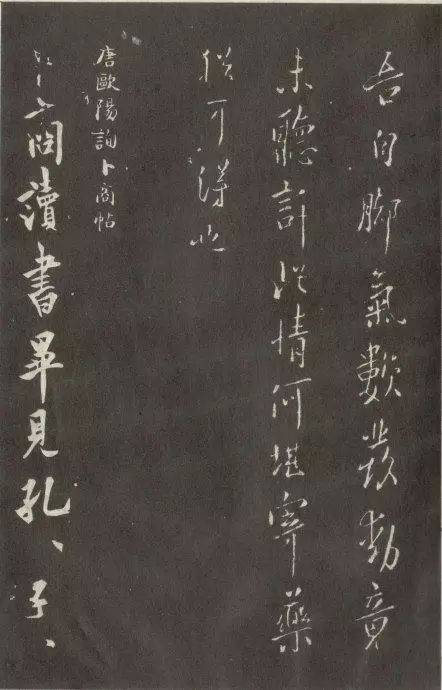 吾自腳氣數發動竟
未聽許此情何堪寄藥
猶可得也
唐歐陽詢卜商帖
卜商讀書畢見孔、子、